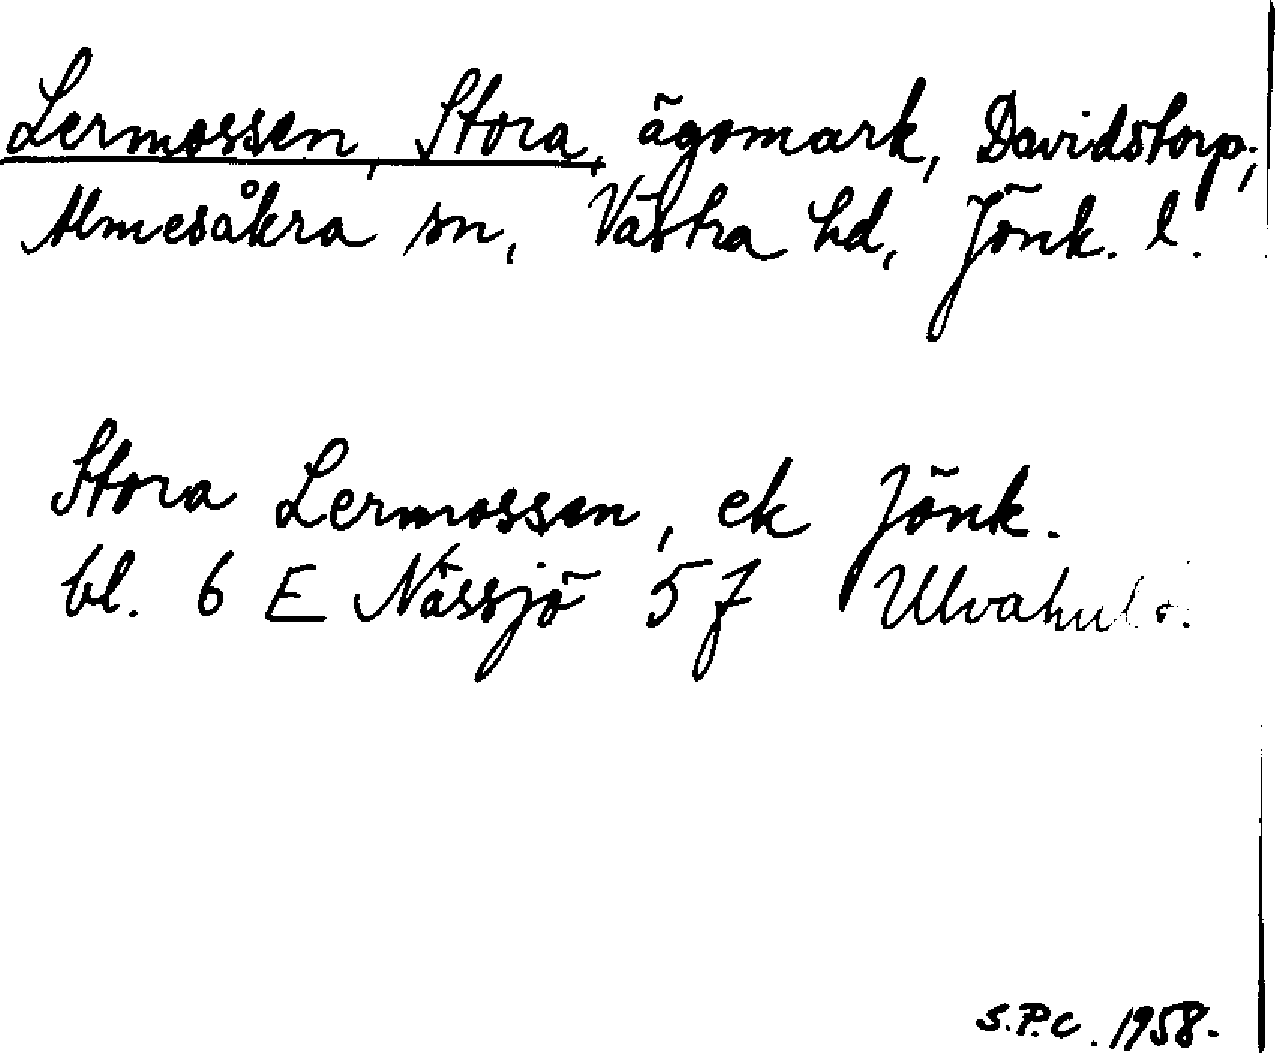 Lermossen, Stora, ägomark, Davidstorp,
Almesåkra sn, Västra hd, Jönk. l.
Stora Lermossen, ek Jönk.
bl. 6 E Nässjö 5 f
S.P.C. 1958.